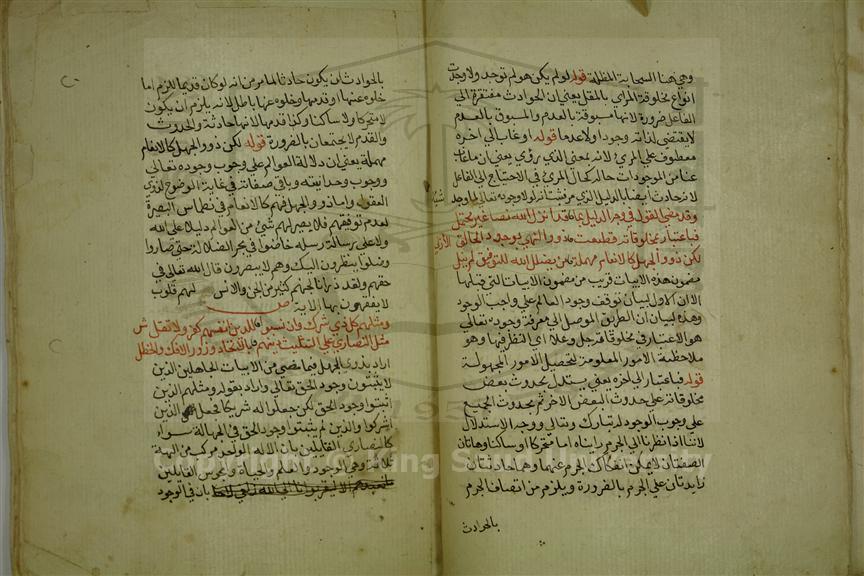 وهي هنا السحابة المظلة قوله لو لم يكن هو لم توجد ولا وجدت
انواع مخلوقة المرائي بالمقل يعني ان الحوادث مفتقرة الي
الفاعل ضرورة لانها مسبوقة بالعدم والمسبوق بالعدم
لا يقتضي لذاته وجودا ولا عدما قوله او غاب الي اخره
معطوف علي المرئي لانه بمعني الذي رؤي يعني ان ما غاب
عنا من الموجودات حاله كحال المرئي في الاحتياج الي الفاعل
لانه حادث ايضا بالدليل الذي مر
وقد مضي القول في وجه الدليل بما قد انزل الله نصا غير محتمل
فباعتبار مخلوقاته قطعت ذوو النهي بوجود الخالق الازلي
لكن ذوو الجهل كالانعام مهملة من يضلل الله للتوفيق لم ينل
مضمون هذه الابيات قريب من مضمون الابيات التي قبلها
الا ان الاول لبيان توقف وجود العالم علي واجب الوجود
وهذه لبيان ان الطريق الموصل الي معرفة وجوده تعالي
هو الاعتبار في مخلوقاته جل وعلا اي النظر فيها وهو
ملاحظة الامور المعلومة لتحصيل الامور المجهولة
قوله فباعتبار الي اخره يعني يستدل بحدوث بعض
مخلوقاته علي حدوث البعض الاخر ثم بحدوث الجميع
علي وجوب الوجود له تبارك وتعالي ووجه الاستدلال
لاننا اذا نظرنا الي الجرم رايناه اما متحركا او ساكنا وهاتان
الصفتان لا يمكن انفكاك الجرم عنهما وهما حادثتان
زايدتان علي الجرم بالضرورة ويلزم من اتصاف الجرم
بالحوادث
بالحوادث ان يكون حادثا لما مر من انه لو كان قديما للزم اما
خلوه عنها او قدمها وخلوه عنها باطل لانه يلزم ان يكون
لا متحركا ولا ساكنا وكذا قدمها لانها حادثة والحدوث
والقدم لا يجتمعان بالضرورة قوله لكن ذوو الجهل كالانعام
مهملة يعني ان دلالة العوالم علي وجوب وجوده تعالي
ووجوب وحدانيته وباقي صفاته في غاية الوضوح لذوي
العقول واما ذوو الجهل فهم كالانعام في انطماس البصيرة
لعدم توفيقهم فلا يصير لهم شيئ من العوالم دليلا علي الله
ولا علي رسالة رسله خاضوا في بحر الضلالة حتي صاروا
وضلوا ينظرون اليك وهم لا يبصرون قال الله تعالي في
حقهم ولقد ذرانا لجهنم كثيرا من الجن والانس لهم قلوب
لا يفقهون بها الاية ص
ومثلهم كل ذي شرك وان نسبوا للدين انفسهم كفر ولا تقل ش
مثل النصاري علي التثليث دينهم بالاتحاد وزور الافك والخطل
اراد بذوي الجهل فيما مضي من الابيات الجاهلين الذين
لا يثبتون وجود الحق تعالي واراد بقوله ومثلهم الذين
اثبتوا وجود الحق لكن جعلوا له شريكا فجعل الذين
اشركوا والذين لم يثبتوا وجود الحق في الجهالة سواء
كالنصاري القايلين بان الاله الواحد مركب من الهة
ثلاثة وهي الوجود والعلم والحياة والمجوس القايلين
بان في الوجود